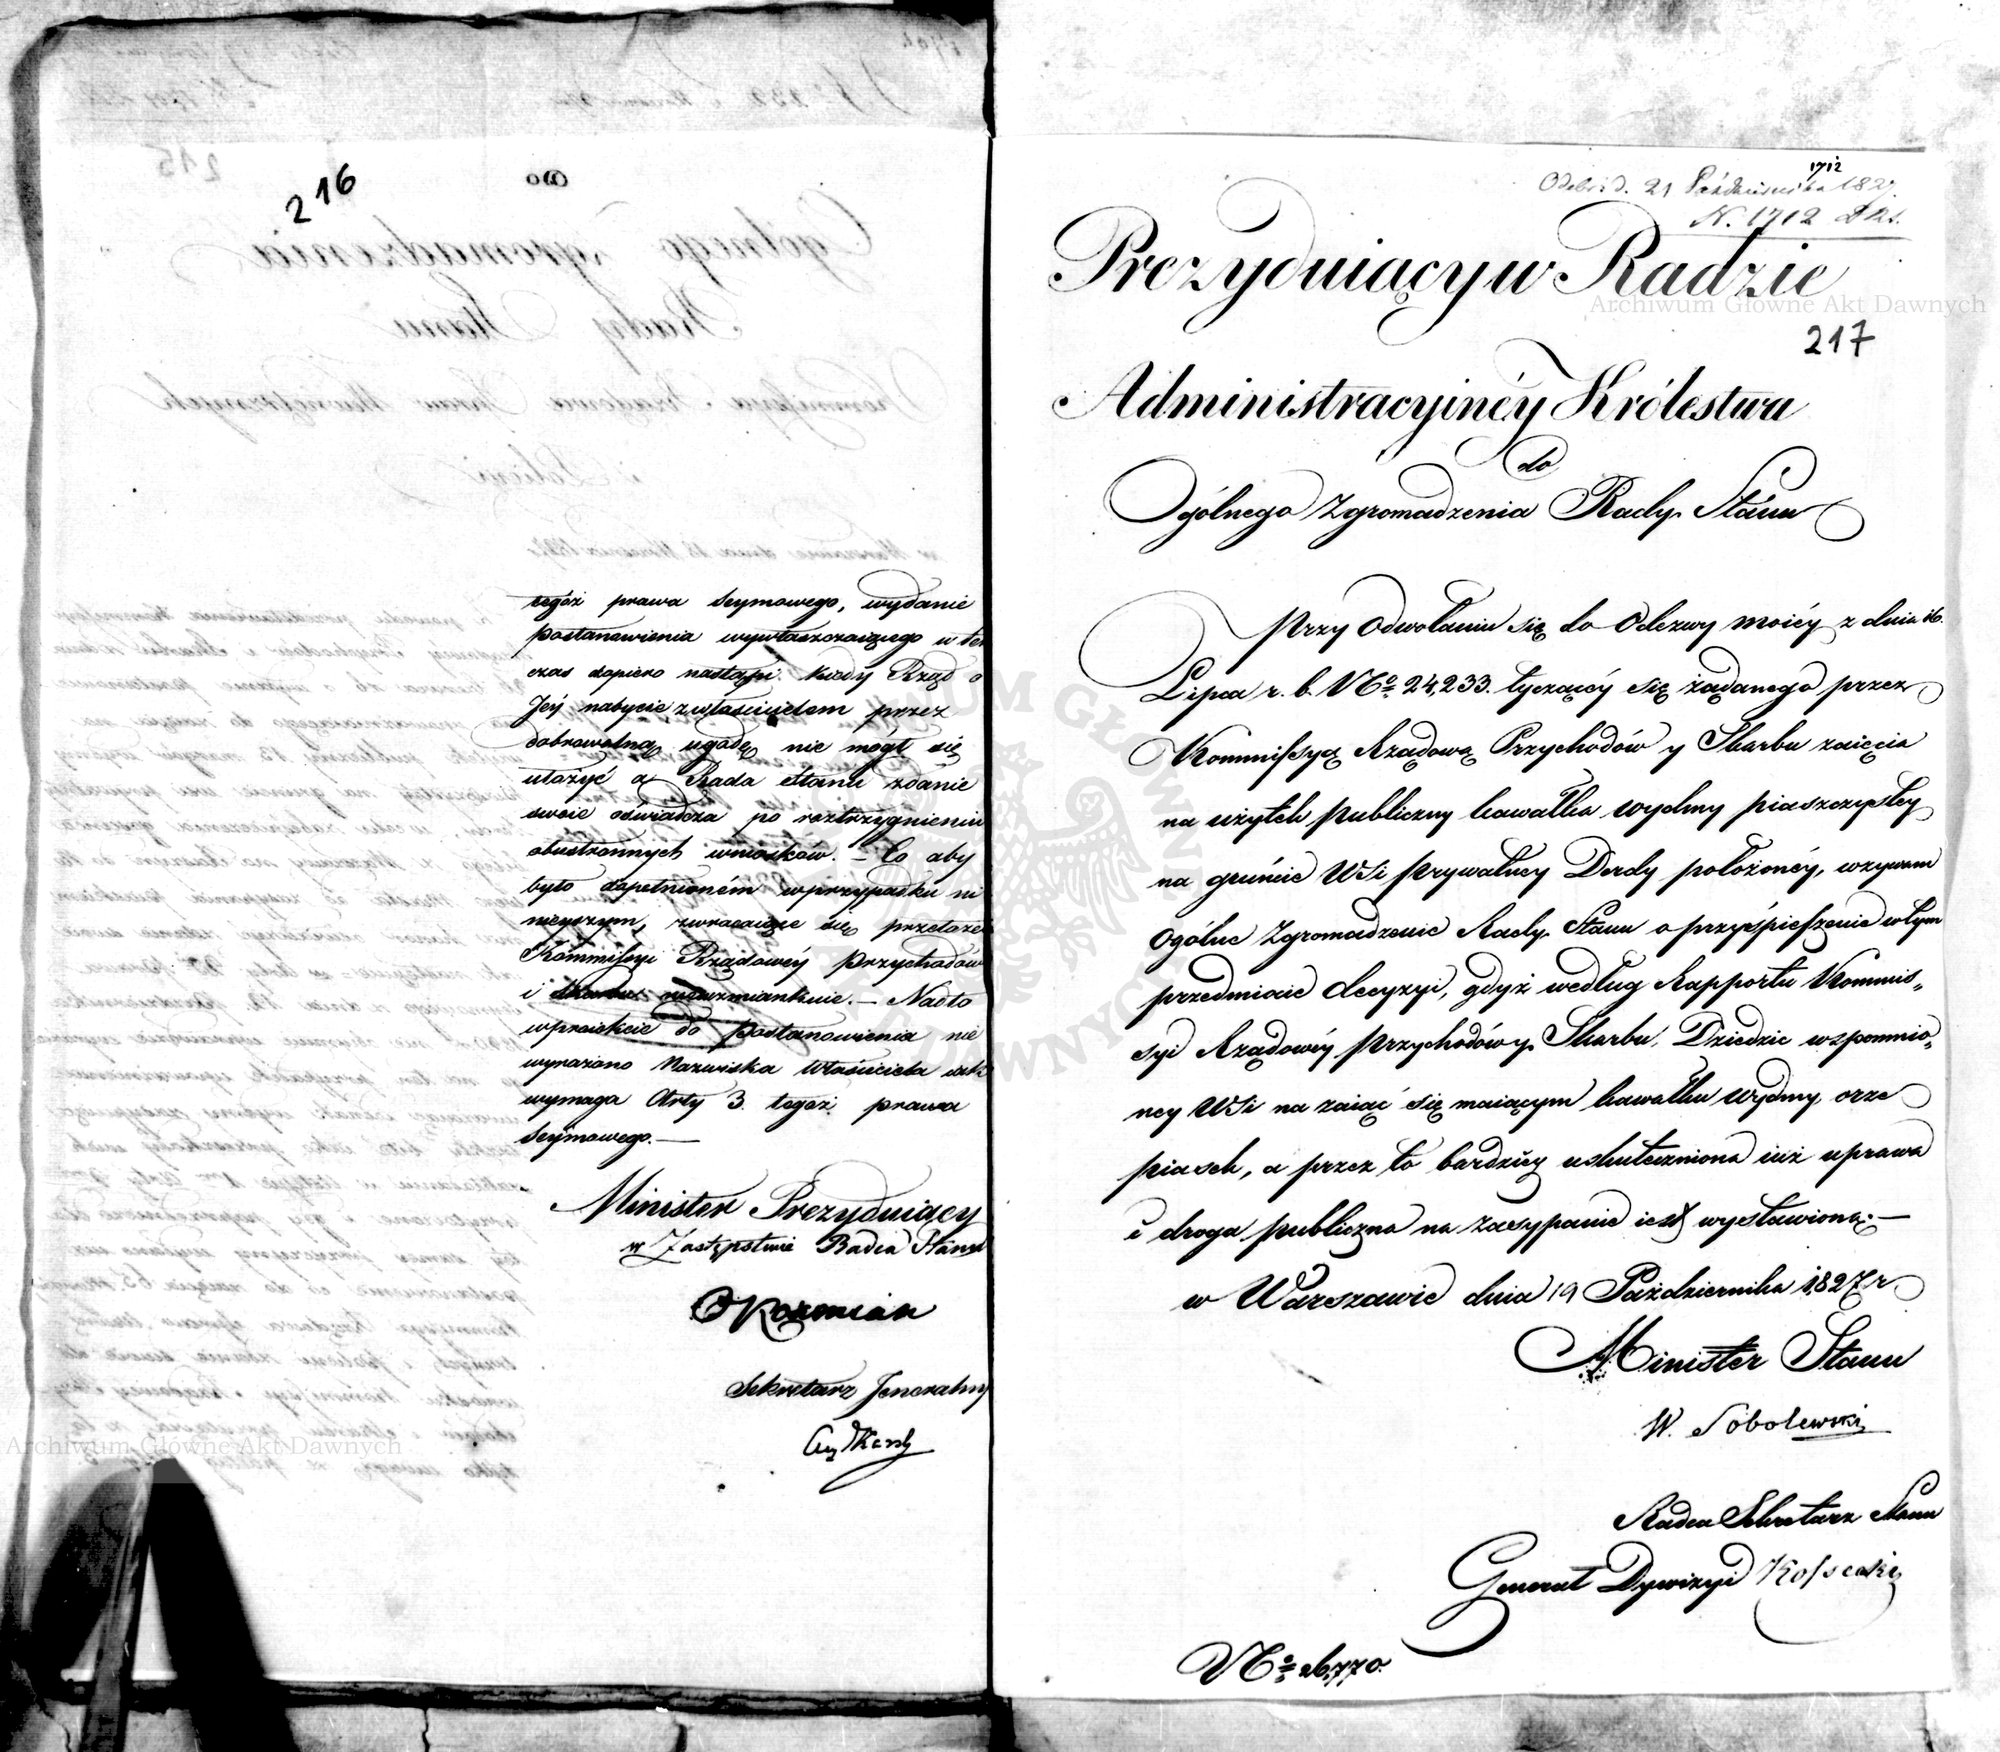 216
tegóż prawa Seymowego, wydanie
postanowienia wywłaszczaiącego w ten
czas dopiero nastąpi kiedy Rząd o
Jéy nabycie z właścicielem przez
dobrowolną ugodę nie mógł się
ułożyć a Rada Stanu zdanie
swoie oświadcza po roztrzygnieniu
obustronnych wniosków. – Co aby
było dopełnioném w przypadku ni
nieyszym, zwracaiąc się przełoże
Kommissyi Rządowéy Przychodów
i Skarbu nadwzmiankuie. – Nadto
w proiekcie do postanowienia nie
wyrażono Nazwiska Właściciela
wymaga Arty 3. tegoż prawa
Seymowego. —
Minister Prezyduiący
w Zastępstwie Radca Stanu
Koźmian
Sekretarz Jeneralny
1712
Odebr: d. 21 Października 1827.
N. 1712
Prezyduiący w Radzie
Archiwum Główne Akt Dawnych
217
Administracyinéy Królestwa
do
Ogólnego Zgromadzenia Rady Stanu
Przy Odwołaniu się do Odezwy moiéy z dnia 16.
Lipca r. b. No 24,233. tyczącéy się żądanego przez
Kommissyą Rządową Przychodów y Skarbu zaięcia
na użytek publiczny kawałka wydmy piaszczystey
na gruncie Wsi prywatney Derdy położonéy, wzywam
Ogólne Zgromadzenie Rady Stanu o przyśpieszenie w tym
przedmiocie decyzyi, gdyż według Rapportu Kommis„
syi Rządowéy Przychodów y Skarbu, Dziedzic wspomnio„
ney Wsi na zaiąć się maiącym kawałku wydmy orze
piasek, a przez to bardziéy uskuteczniona iuż uprawa
i droga publiczna na zasypanie iest wystawioną. —
w Warszawie dnia 19 Października 1827 r.
Minister Stanu
W. Sobolewski
Radca Sekretarz Stanu
Generał Dywizyi Kossecki
No 26,770.
Archiwum Główne Akt Dawnych